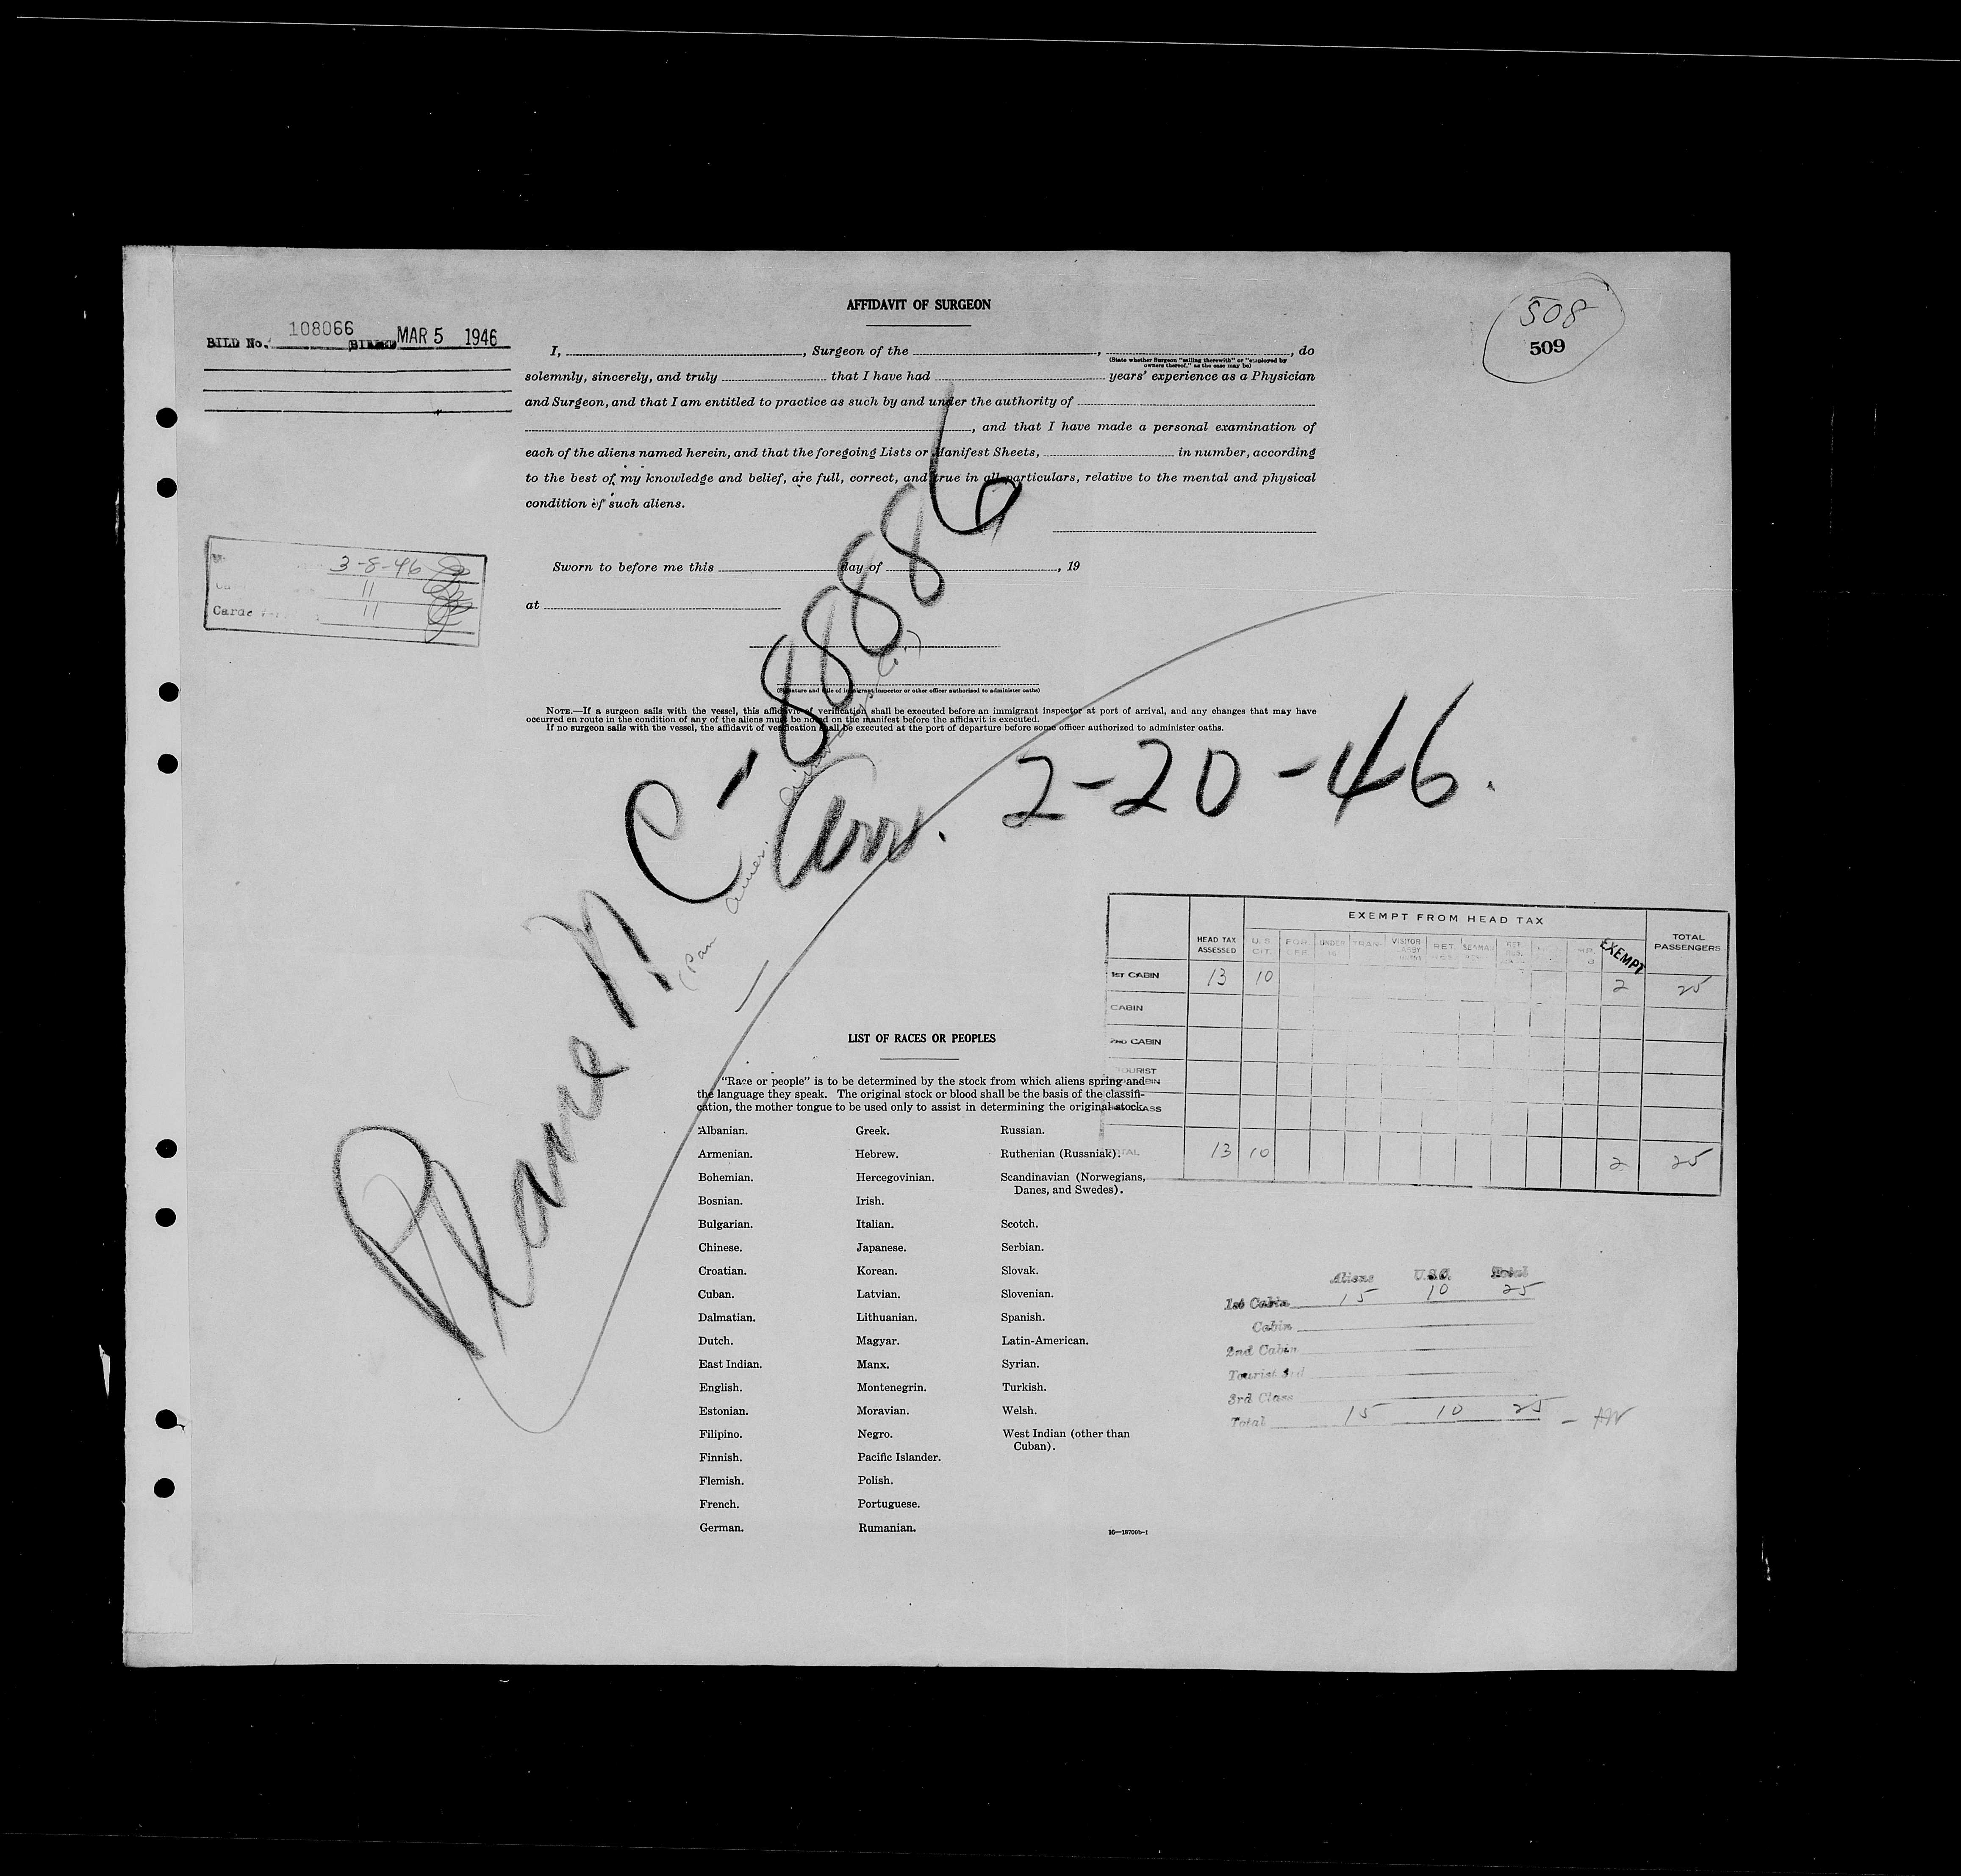 AFFIDAVIT OF SURGEON
508
509
BILD No. 108066 MAR 5 1946
I, , Surgeon of the , , do
(State whether Surgeon "sailing therewith" or "employed by
owners thereof," as the case may be)
solemnly, sincerely, and truly that I have had years' experience as a Physician
and Surgeon, and that I am entitled to practice as such by and under the authority of
, and that I have made a personal examination of
each of the aliens named herein, and that the foregoing Lists or Manifest Sheets, in number, according
to the best of my knowledge and belief, are full, correct, and true in all particulars, relative to the mental and physical
condition of such aliens.
3-8-46
11
Carde 11
Sworn to before me this day of , 19
at
(Signature and title of immigrant inspector or other officer authorized to administer oaths)
NOTE.—If a surgeon sails with the vessel, this affidavit of verification shall be executed before an immigrant inspector at port of arrival, and any changes that may have
occurred en route in the condition of any of the aliens must be noted on the manifest before the affidavit is executed.
If no surgeon sails with the vessel, the affidavit of verification shall be executed at the port of departure before some officer authorized to administer oaths.
Plane N C-88886
(Pan Amer.
Arr. 2-20-46.
EXEMPT FROM HEAD TAX
HEAD TAX ASSESSED U.S. CIT. FOR UNDER TRAN VISITOR RET. SEAMAN EXEMPT TOTAL PASSENGERS
1ST CABIN 13 10 2 25
CABIN
2ND CABIN
TOURIST
CLASS
TOTAL 13 10 2 25
LIST OF RACES OR PEOPLES
"Race or people" is to be determined by the stock from which aliens spring and
the language they speak. The original stock or blood shall be the basis of the classifi-
cation, the mother tongue to be used only to assist in determining the original stock.
Albanian. Greek. Russian.
Armenian. Hebrew. Ruthenian (Russniak).
Bohemian. Hercegovinian. Scandinavian (Norwegians,
Danes, and Swedes).
Bosnian. Irish.
Bulgarian. Italian. Scotch.
Chinese. Japanese. Serbian.
Croatian. Korean. Slovak.
Cuban. Latvian. Slovenian.
Dalmatian. Lithuanian. Spanish.
Dutch. Magyar. Latin-American.
East Indian. Manx. Syrian.
English. Montenegrin. Turkish.
Estonian. Moravian. Welsh.
Filipino. Negro. West Indian (other than
Cuban).
Finnish. Pacific Islander.
Flemish. Polish.
French. Portuguese.
German. Rumanian.
Aliens U.S.C. Total
1st Cabin 15 10 25
Cabin
2nd Cabin
Tourist 3rd
3rd Class
Total 15 10 25